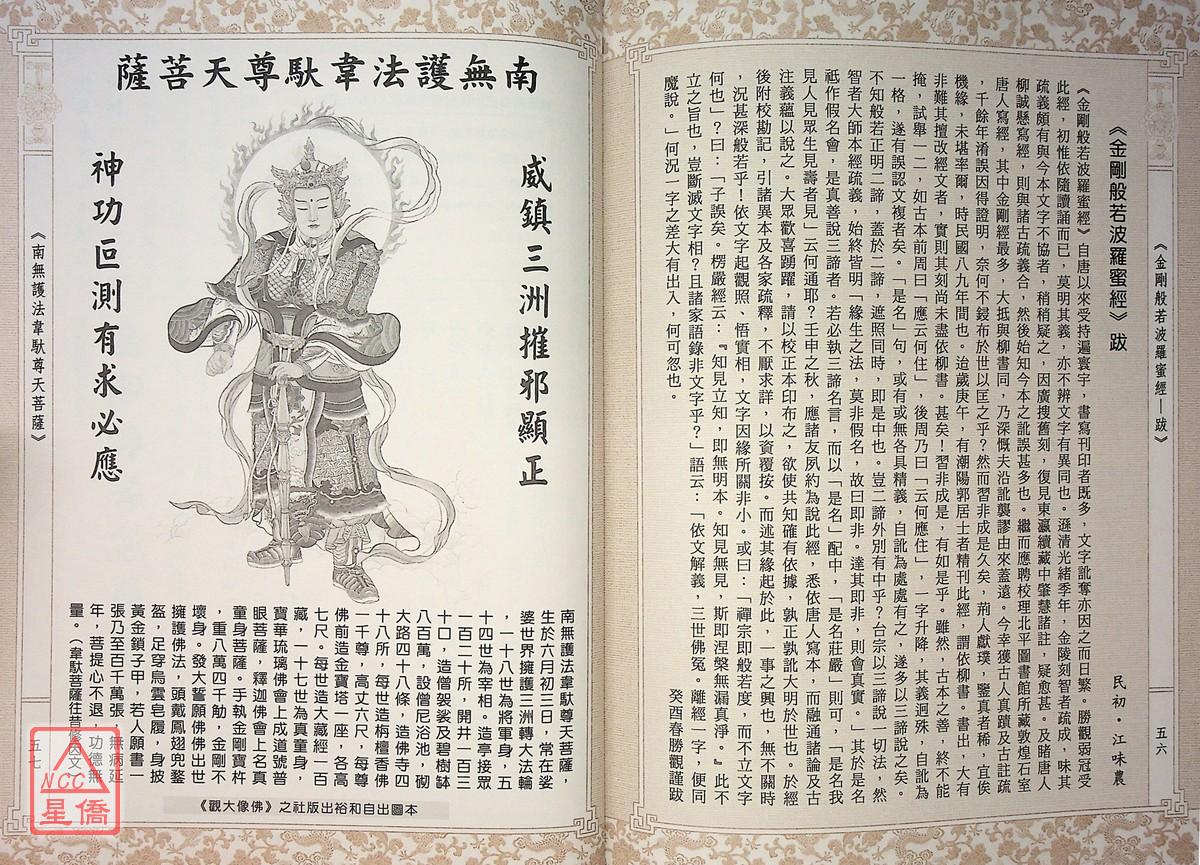 《金剛般若波羅蜜經—跋》
五六
《金剛般若波羅蜜經》跋
民初．江味農
《金剛般若波羅蜜經》自唐以來受持遍寰宇，書寫刊印者既多，文字訛奪亦因之而日繁。勝觀弱冠受
此經，初惟依隨讀誦而已，莫明其義，亦不辨文字有異同也。遜清光緒季年，金陵刻智者疏成，味其
疏義頗有與今本文字不協者，稍稍疑之，因廣搜舊刻，復見東瀛續藏中肇慧諸註，疑愈甚。及睹唐人
柳誠懸寫經，則與諸古疏義合，然後始知今本之訛誤甚多也。繼而應聘校理北平圖書館所藏敦煌石室
唐人寫經，其中金剛經最多，大抵與柳書同，乃深慨夫沿訛襲謬由來蓋遠。今幸獲古人真蹟及古註疏
，千餘年淆誤因得證明，奈何不鋟布於世以匡之乎？然而習非成是久矣，荊人獻璞，鑒真者稀，宜俟
機緣，未堪率爾，時民國八九年間也。迨歲庚午，有潮陽郭居士者精刊此經，謂依柳書。書出，大有
非難其擅改經文者，實則其刻尚未盡依柳書。甚矣！習非成是，有如是乎。雖然，古本之善，終不能
掩，試舉一二，如古本前周曰「應云何住」，後周乃曰「云何應住」，一字升降，其義迥殊，自訛為
一格，遂有誤認文複者矣。「是名」句，或有或無各具精義，自訛為處處有之，遂多以三諦說之矣。
不知般若正明二諦，蓋於二諦，遮照同時，即是中也。豈二諦外別有中乎？台宗以三諦說一切法，然
智者大師本經疏義，始終皆明「緣生之法，莫非假名，故曰即非。達其即非，則會真實。」其於是名
祗作假名會，是真善說三諦者。若必執三諦名言，而以「是名」配中，「是名莊嚴」則可，「是名我
見人見眾生見壽者見」云何通耶？壬申之秋，應諸友夙約為說此經，悉依唐人寫本，而融通諸論及古
注義蘊以說之。大眾歡喜踴躍，請以校正本印布之，欲使共知確有依據，孰正孰訛大明於世也。於經
後附校勘記，引諸異本及各家疏釋，不厭求詳，以資覆按。而述其緣起於此，一事之興也，無不關時
，況甚深般若乎！依文字起觀照、悟實相，文字因緣所關非小。或曰：「禪宗即般若度，而不立文字
何也」？曰：「子誤矣。楞嚴經云：『知見立知，即無明本。知見無見，斯即涅槃無漏真淨。』此不
立之旨也，豈斷滅文字相？且諸家語錄非文字乎？」語云：「依文解義，三世佛冤。離經一字，便同
魔說。」何況一字之差大有出入，何可忽也。
癸酉春勝觀謹跋
南無護法韋馱尊天菩薩
威鎮三洲摧邪顯正
神功叵測有求必應
南無護法韋馱尊天菩薩，
生於六月初三日，常在娑
婆世界擁護三洲轉大法輪
，一十八世為將軍身，五
十四世為宰相。造亭接眾
一百二十所，開井一百三
十口，造僧袈裟及碧樹缽
八百萬，設僧尼浴池，砌
大路四十八條，造佛寺四
十八所，每世造栴檀香佛
一千尊，高丈六尺，每尊
佛前造金寶塔一座，各高
七尺。每世造大藏經一百
藏，一十七世為真童身，
寶華琉璃佛會上成道號普
眼菩薩，釋迦佛會上名真
童身菩薩。手執金剛寶杵
，重八萬四千觔，金剛不
壞身。發大誓願佛佛出世
擁護佛法，頭戴鳳翅兜鍪
盔，足穿烏雲皂履，身披
黃金鎖子甲，若人願書一
張乃至百千萬張，無病延
年，菩提心不退，功德無
量。（韋馱菩薩往昔修因文）
本圖出自和裕出版社之《佛像大觀》
《南無護法韋馱尊天菩薩》
五七
NCC
星僑